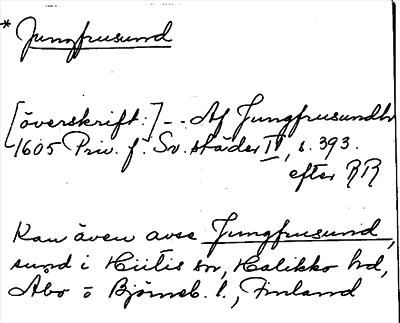 * Jungfrusund
[överskrift:] -- Af Jungfrusundh
1605 Priv. f. Sv. städer IV, s. 393.
efter RR
Kan även avse Jungfrusund,
sund i Hiitis sn, Halikko hd,
Åbo o Björneb. l., Finland